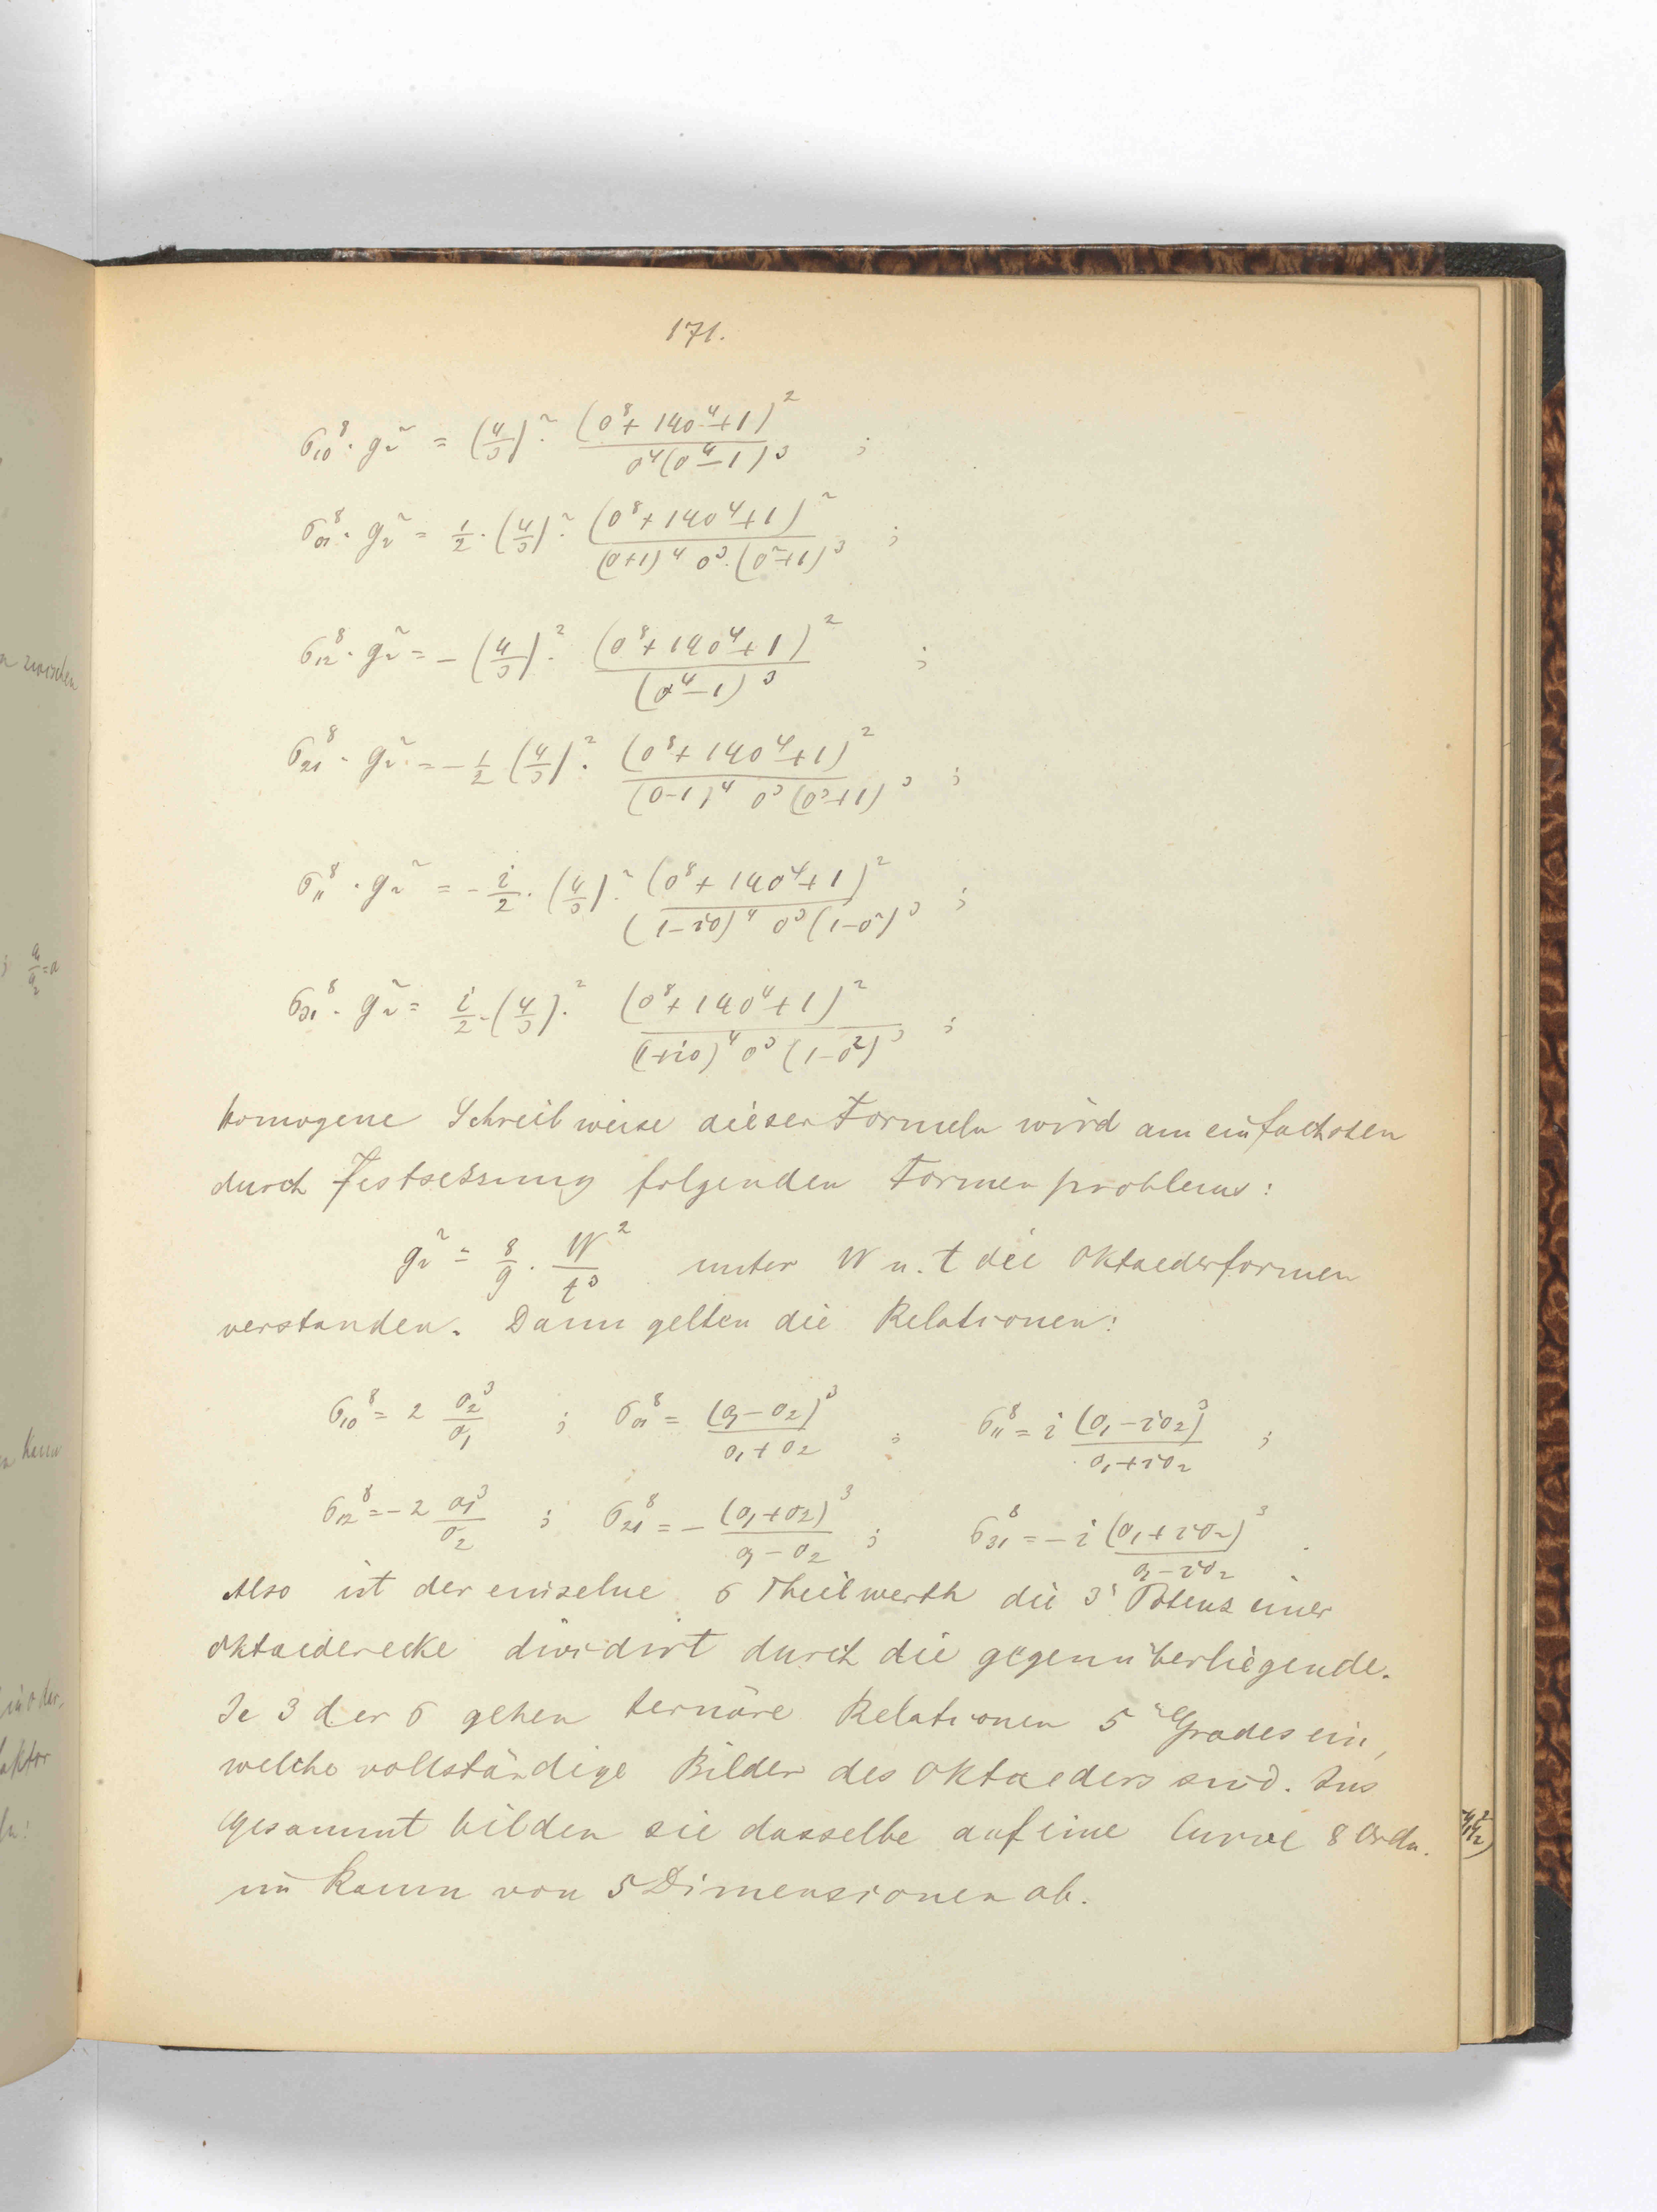 171.
σ₁₀⁸ · g₂² = (4/3)² · (o⁸ + 14o⁴ + 1)² / o⁴(o⁴ − 1)³ ;
σ₀₁⁸ · g₂² = 1/2 · (4/3)² · (o⁸ + 14o⁴ + 1)² / (o+1)⁴ o³ · (o² + 1)³ ;
σ₁₂⁸ · g₂² = − (4/3)² · (o⁸ + 14o⁴ + 1)² / (o⁴ − 1)³ ;
σ₂₁⁸ · g₂² = − 1/2 (4/3)² · (o⁸ + 14o⁴ + 1)² / (o−1)⁴ o³ (o² + 1)³ ;
σ₁₁⁸ · g₂² = − i/2 · (4/3)² · (o⁸ + 14o⁴ + 1)² / (1 − io)⁴ o³ (1 − o²)³ ;
σ₃₁⁸ · g₂² = i/2 · (4/3)² · (o⁸ + 14o⁴ + 1)² / (1 + io)⁴ o³ (1 − o²)³ ;
Homogene Schreibweise dieser Formeln wird am einfachsten
durch Festsetzung folgenden Formenproblems:
g₂² = 8/9 · W²/t³ unter W u. t die Oktaederformen
verstanden. Dann gelten die Relationen:
σ₁₀⁸ = 2 o₂³/o₁ ; σ₀₁⁸ = (o₁ − o₂)³/(o₁ + o₂) ; σ₁₁⁸ = i (o₁ − io₂)³/(o₁ + io₂) ;
σ₁₂⁸ = − 2 o₁³/o₂ ; σ₂₁⁸ = − (o₁ + o₂)³/(o₁ − o₂) ; σ₃₁⁸ = − i (o₁ + io₂)³/(o₁ − io₂) .
Also ist der einzelne σ Theilwerth die 3ᵗ Potenz einer
Oktaederecke dividirt durch die gegenüberliegende.
Je 3 der σ gehen ternäre Relationen 5ᵗᵉⁿ Grades ein,
welche vollständige Bilder des Oktaeders sind. Ins
gesammt bilden sie dasselbe auf eine Curve 8 Ordn.
im Raum von 5 Dimensionen ab.